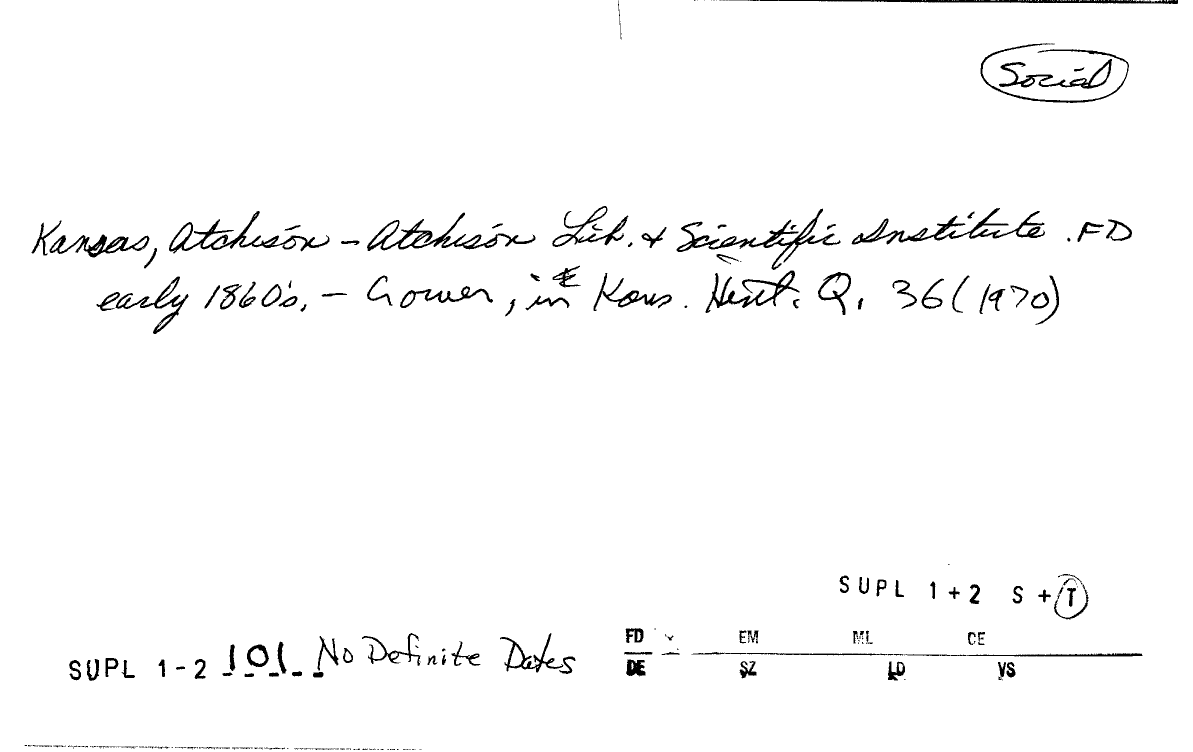 Social
Kansas, Atchison - Atchison Lib. & Scientific Institute. FD
early 1860's. - Gower, in Kans. Hist. Q. 36 (1970)
SUPL 1+2 S + T
FD EM ML CE
SUPL 1-2 101 No Definite Dates
DE SZ LD VS